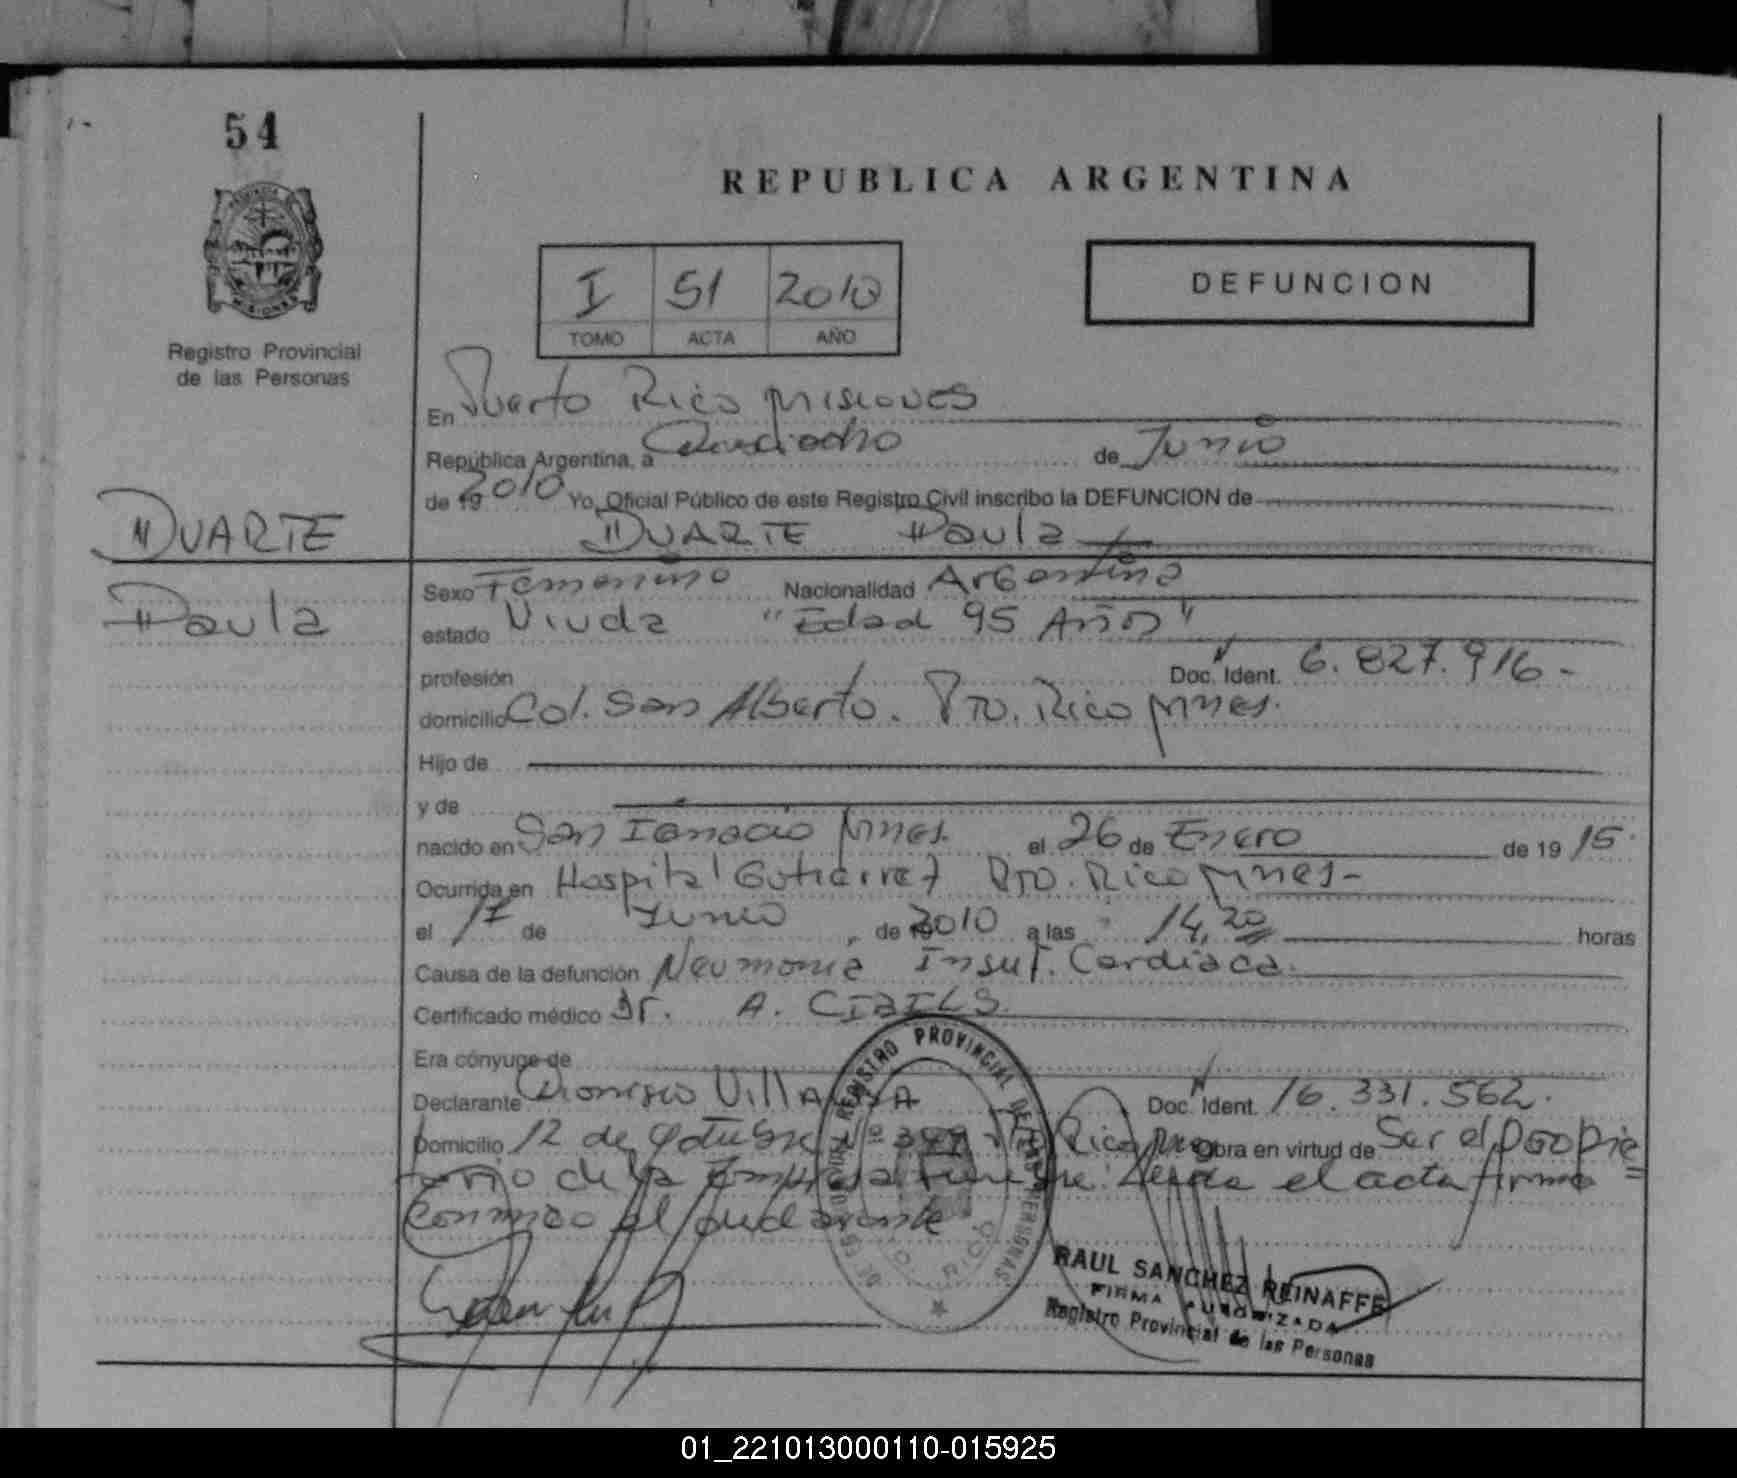 54
REPUBLICA ARGENTINA
I 51 2010
TOMO ACTA AÑO
DEFUNCION
Registro Provincial
de las Personas
En Puerto Rico Misiones
República Argentina, a Dieciocho de Junio
de 19 2010 Yo, Oficial Público de este Registro Civil inscribo la DEFUNCION de
DUARTE DUARTE Paula
Paula
Sexo Femenino Nacionalidad Argentina
estado Viuda "Edad 95 Años"
profesión Doc. Ident. 6.827.916.-
domicilio Col. San Alberto. Pto. Rico Mnes.
Hijo de
y de
nacido en San Ignacio Mnes. el 26 de Enero de 19 15
Ocurrida en Hospital Gutierrez Pto. Rico Mnes-
el 17 de Junio de 2010 a las 14,20 horas
Causa de la defunción Neumonia Insuf. Cardiaca.
Certificado médico Dr. A. CIBILS
Era cónyuge de
Declarante Dionisio Villalva Doc. Ident. 16.331.562.
Domicilio 12 de Octubre Nº Rico obra en virtud de Ser el Propie=
tario de la Empresa Funebre. Leida el acta firma
conmigo el declarante
REGISTRO PROVINCIAL DE LAS PERSONAS
PTO. RICO
RAUL SANCHEZ REINAFFE
FIRMA AUTORIZADA
Registro Provincial de las Personas
01_221013000110-015925